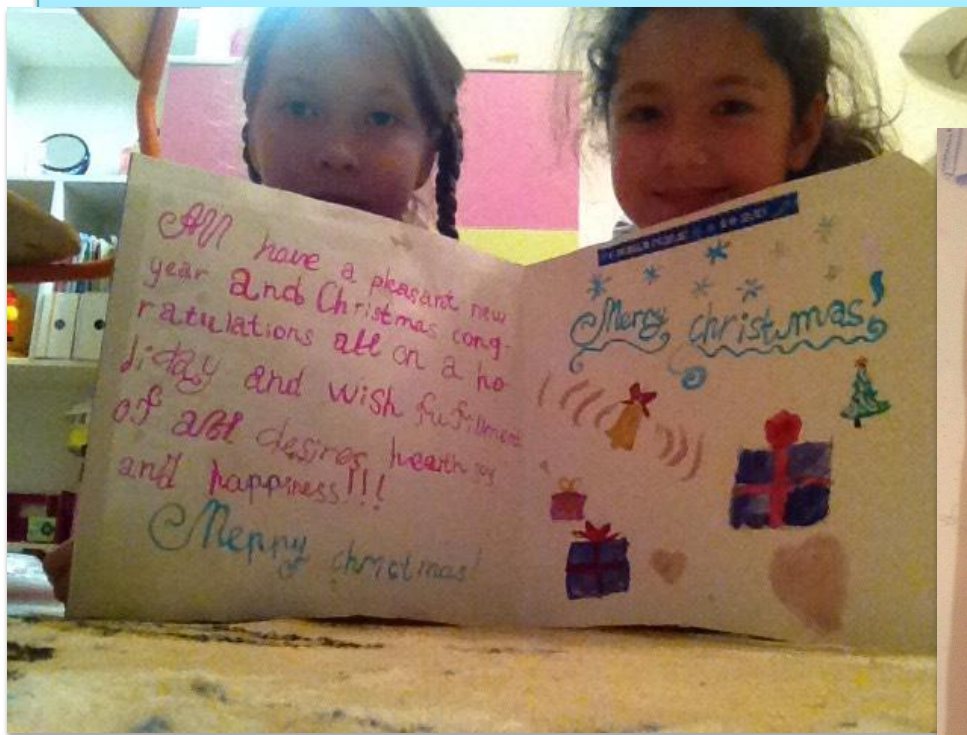 All have a pleasant new
year and Christmas cong-
ratulations all on a ho
liday and wish fufillment
of all desires health joy
and happiness!!!
Meppy christmas!
Merry christmas!